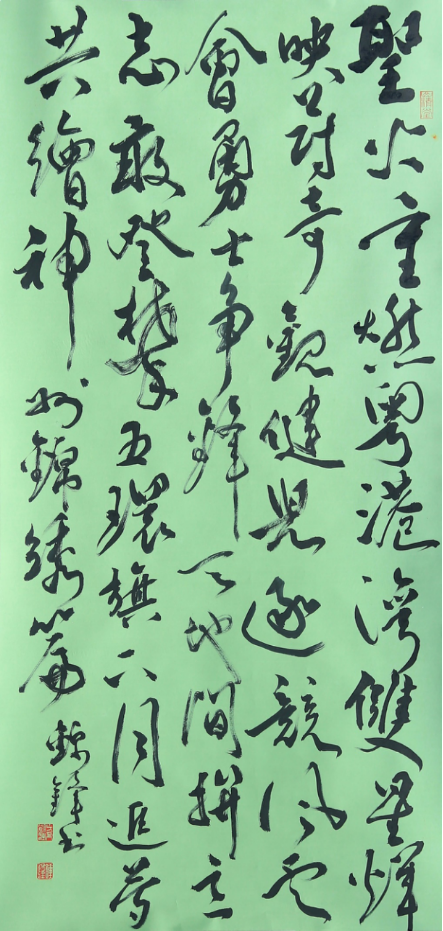 聖火重燃粵港灣雙星輝
映奇觀健兒逐競風雲
會勇士争鋒天地間拼意
志敢登攀五環旗下同追夢
共繪神州錦繡篇
鋒书